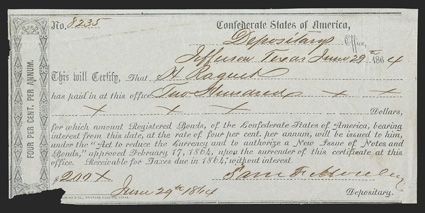 No. 8235 Confederate States of America,
Depositary's Office,
Jefferson Texas June 29th 1864
This will Certify, That H. Raguet
has paid in at this office Two Hundred x x
x x x x Dollars,
for which amount Registered Bonds, of the Confederate States of America, bearing
interest from this date, at the rate of four per cent. per annum, will be issued to him,
under the "Act to reduce the Currency and to authorize a New Issue of Notes and
Bonds," approved February 17, 1864, upon the surrender of this certificate at this
office. Receivable for Taxes due in 1864, without interest.
$200 x
June 29th 1864 Sam
Depositary.
FOUR PER CENT. PER ANNUM.